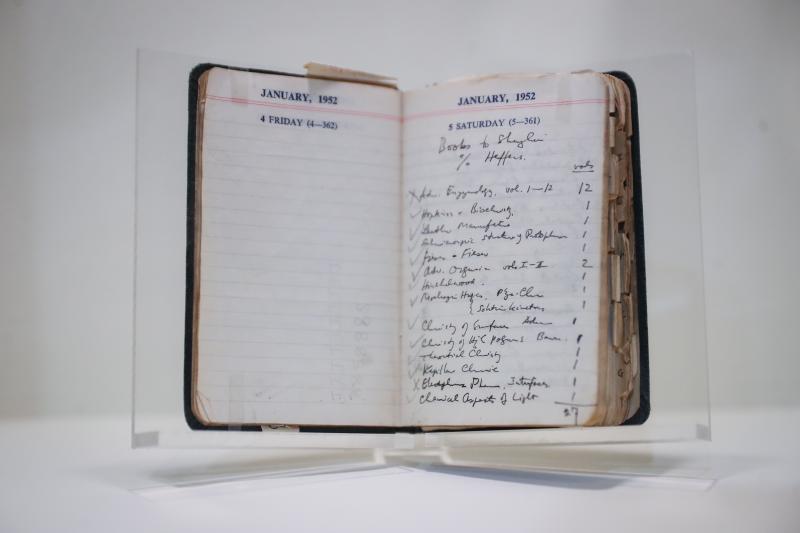 JANUARY, 1952
4 FRIDAY (4—362)
JANUARY, 1952
5 SATURDAY (5—361)
Books to
% Heffers.
vols
X Adv. Enzymology, vol. 1—12 12
✓ Hopkins & Biochemistry 1
✓ Leather Manufacture 1
✓ Submicroscopic Structure of Protoplasm 1
✓ Fieser & Fieser 1
✓ Adv. Organic vols I—II 2
✓ Hinshelwood. 1
✓ Moelwyn Hughes, Phys. Chem 1
{ Solution kinetics 1
✓ Chemistry of Surface 1
✓ Chemistry of High Polymers 1
✓ Theoretical Chemistry 1
✓ Kapillar Chemie 1
X Electrophoresis Phenom, Interfaces 1
✓ Chemical Aspects of Light 1
27